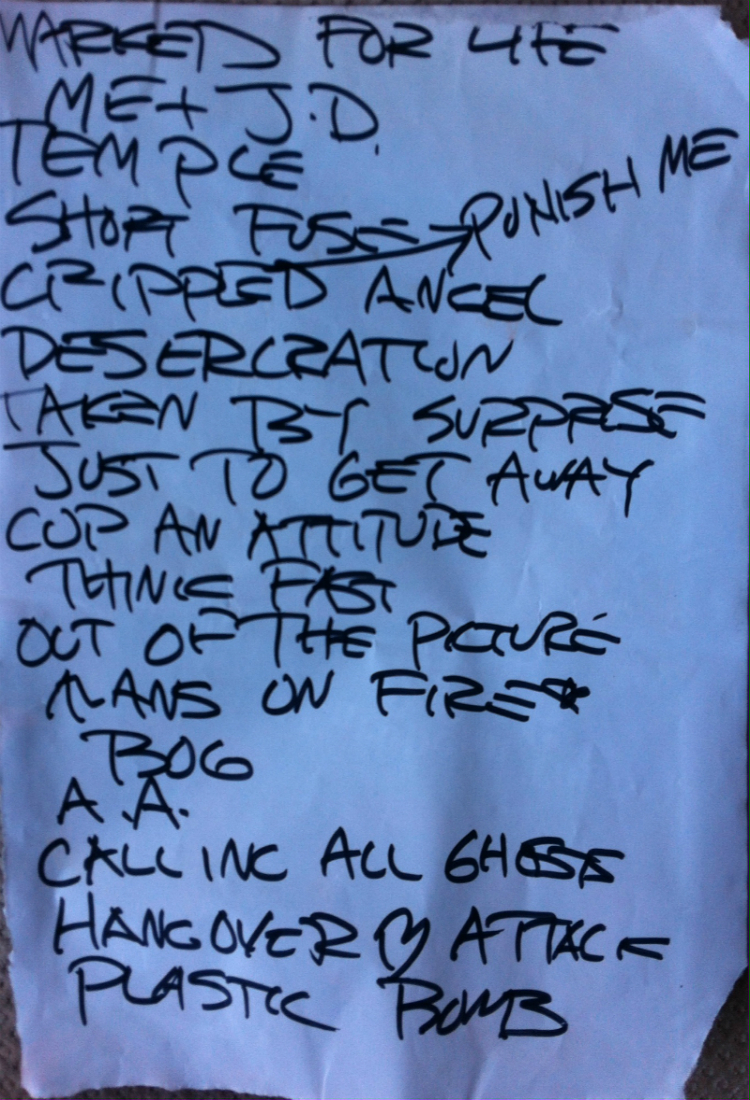 MARKED FOR LIFE
ME + J.D.
TEMPLE
SHORT FUSE → PUNISH ME
CRIPPED ANGEL
DESERCRATION
TAKEN BY SURPRISE
JUST TO GET AWAY
COP AN ATTITUDE
THINK FAST
OUT OF THE PICTURE
PLANS ON FIRE
BOG
A.A.
CALLING ALL GHOSTS
HANGOVER ♡ ATTACK
PLASTIC BOMB